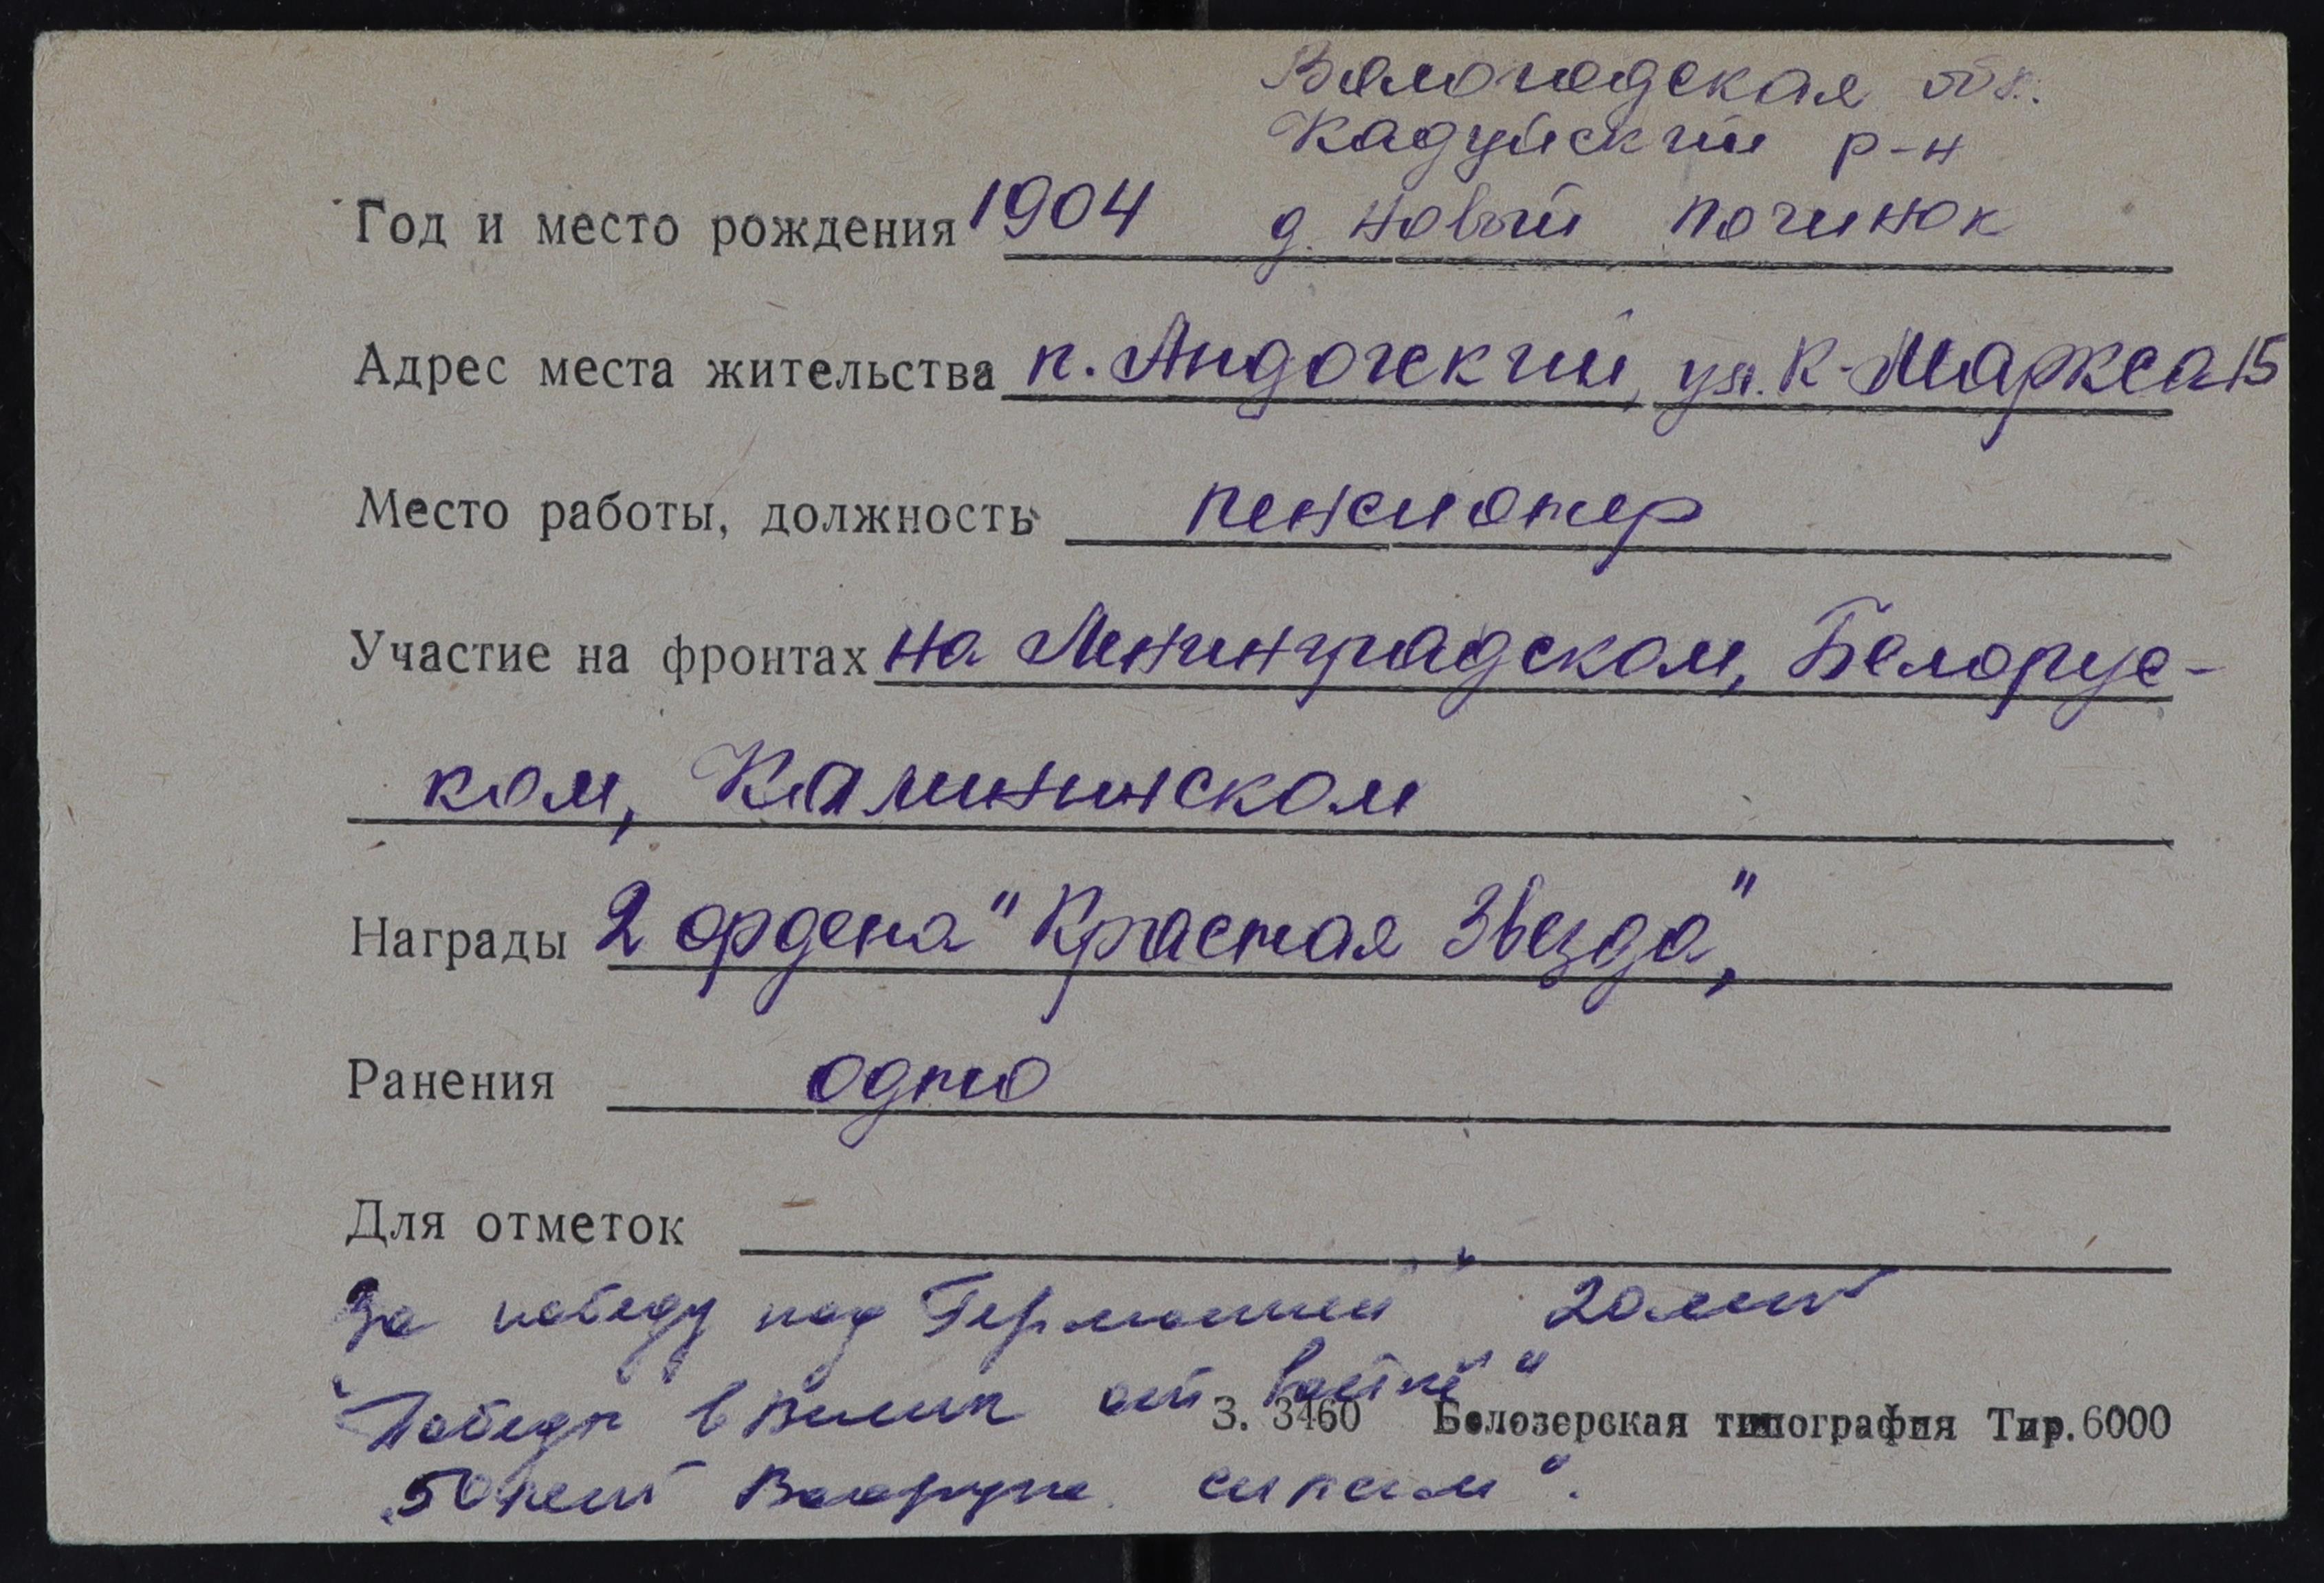 Вологодская обл.
Кадуйский р-н
Год и место рождения 1904 д. Новый Починок
Адрес места жительства п. Андогский, ул. К-Маркса 15
Место работы, должность пенсионер
Участие на фронтах на Ленинградском, Белорус-
ком, Калининском
Награды 2 ордена "Красная Звезда",
Ранения одно
Для отметок
За победу над Германией" 20 лет
"Победы в Велик от войне"
З. 3460 Белозерская типография Тир. 6000
"50 лет Вооруж. силам".